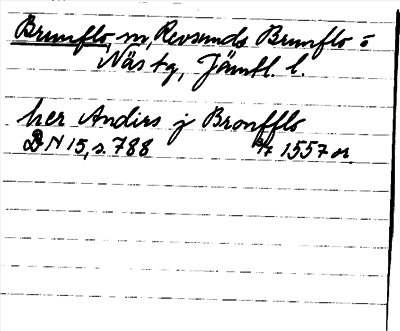 Brunflo, sn, Revsunds Brunflo o
Näs tg, Jämtl. l.
her Andirs j Bronfflo
DN 15, s. 788 1557 or.